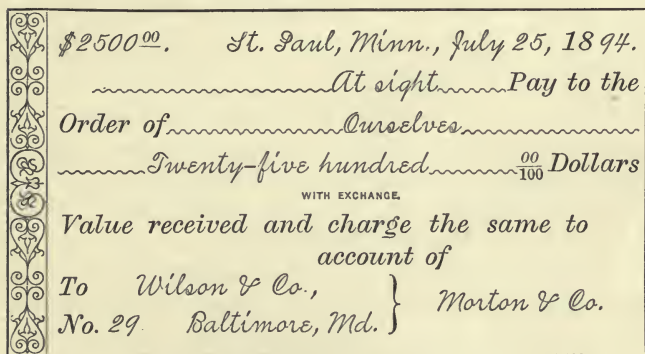 $2500 00. St. Paul, Minn., July 25, 1894.
At sight Pay to the
Order of Ourselves
Twenty-five hundred 00/100 Dollars
WITH EXCHANGE.
Value received and charge the same to
account of
To Wilson & Co., } Morton & Co.
No. 29 Baltimore, Md.